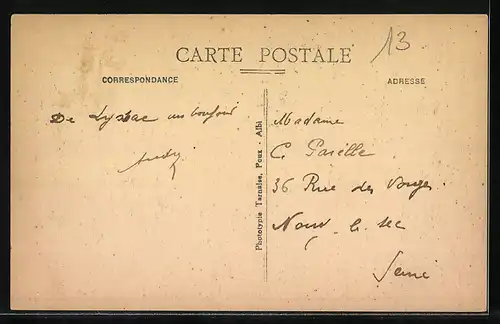 13
CARTE POSTALE
CORRESPONDANCE
ADRESSE
De un bonjour
Phototypie Tarnaise, Poux - Albi
Madame
C.
36 Rue des Vosges
le sec
Seine